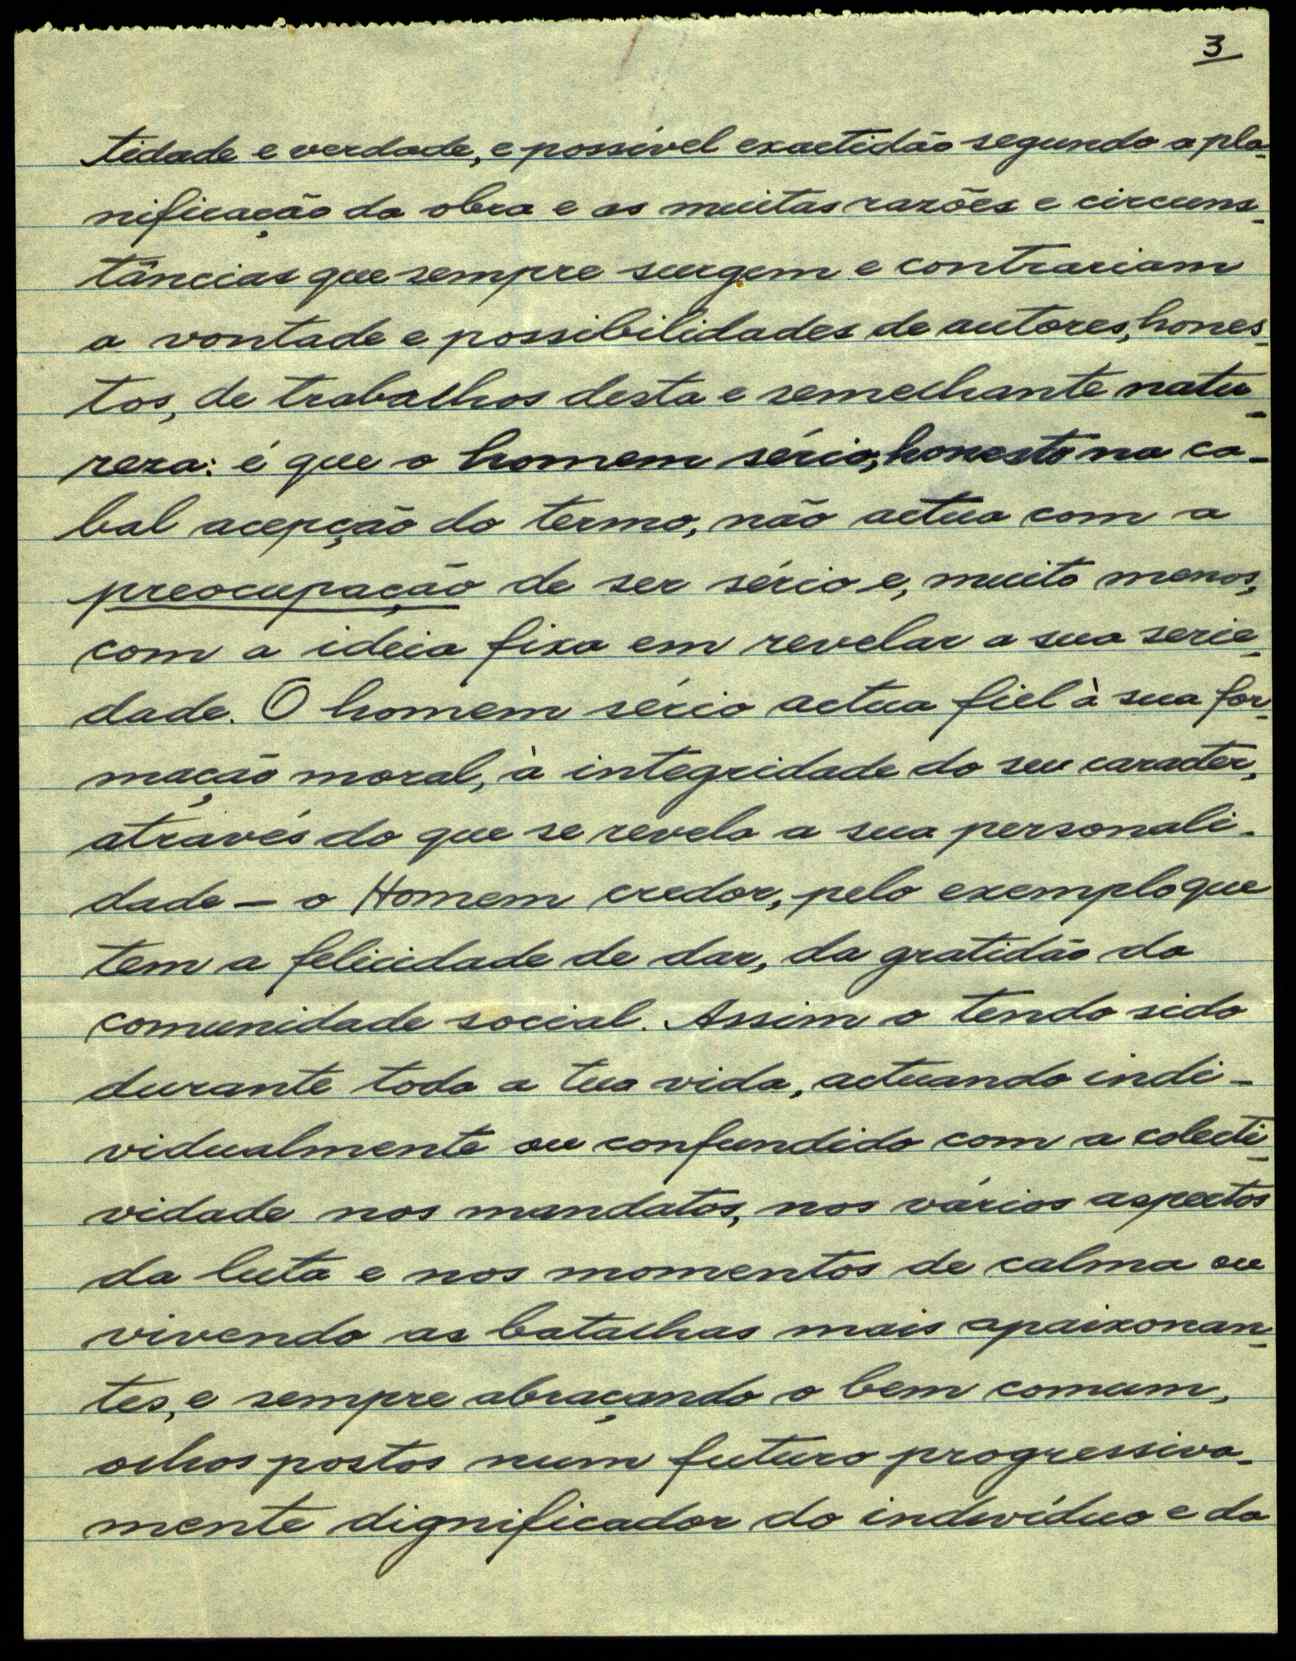 3
tidade e verdade, e possível exactidão segundo a pla-
nificação da obra e as muitas razões e circuns-
tâncias que sempre surgem e contrariam
a vontade e possibilidades de autores, hones-
tos, de trabalhos desta e semelhante natu-
reza: é que o homem sério, honesto na ca-
bal acepção do termo, não actua com a
preocupação de ser sério e, muito menos,
com a ideia fixa em revelar a sua serie-
dade. O homem sério actua fiel à sua for-
mação moral, à integridade do seu caracter,
através do que se revela a sua personali-
dade — o Homem credor, pelo exemplo que
tem a felicidade de dar, da gratidão da
comunidade social. Assim o tendo sido
durante toda a tua vida, actuando indi-
vidualmente ou confundido com a colecti-
vidade nos mandatos, nos vários aspectos
da luta e nos momentos de calma ou
vivendo as batalhas mais apaixonan-
tes, e sempre abraçando o bem comum,
olhos postos num futuro progressiva-
mente dignificador do indivíduo e da